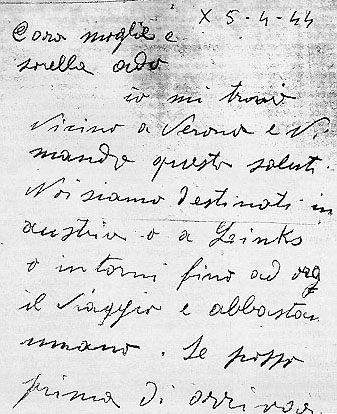 X 5-4-44
Cara moglie e
sorella ada
io mi trovo
vicino a Verona e vi
mando questo saluti
Noi siamo destinati in
austria o a Leinks
o intorni fino ad org
il viaggio e abbastan
umano. Se posso
prima di arrivar